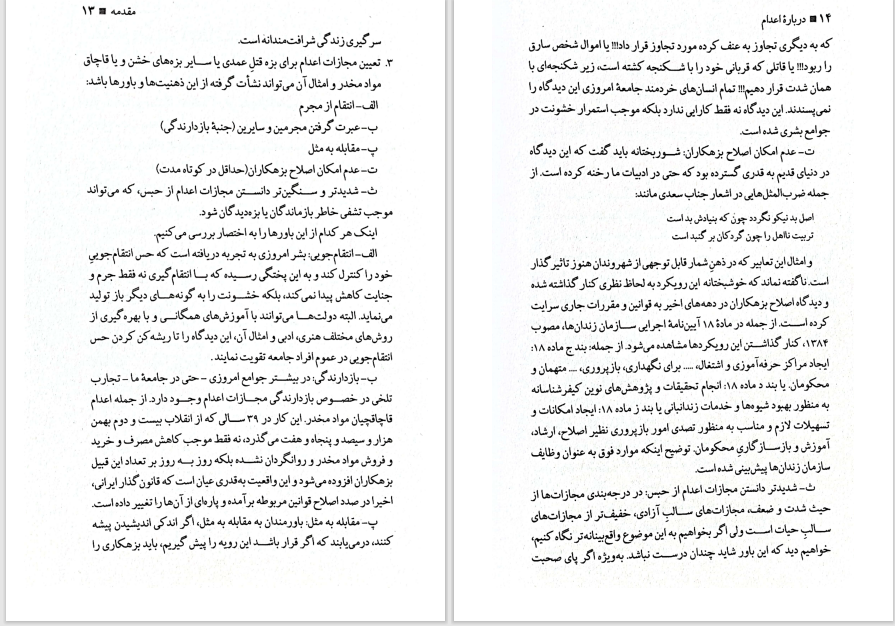 مقدمه ■ ۱۳
سرگیری زندگی شرافت‌مندانه است.
۳. تعیین مجازات اعدام برای بزه قتل عمدی یا سایر بزه‌های خشن و یا قاچاق
مواد مخدر و امثال آن می‌تواند نشأت گرفته از این ذهنیت‌ها و باورها باشد:
الف- انتقام از مجرم
ب- عبرت گرفتن مجرمین و سایرین (جنبۀ بازدارندگی)
پ- مقابله به مثل
ت- عدم امکان اصلاح بزهکاران(حداقل در کوتاه مدت)
ث- شدیدتر و سنگین‌تر دانستن مجازات اعدام از حبس، که می‌تواند
موجب تشفی خاطر بازماندگان یا بزه‌دیدگان شود.
اینک هر کدام از این باورها را به اختصار بررسی می‌کنیم.
الف- انتقام‌جویی: بشر امروزی به تجربه دریافته است که حس انتقام‌جویی
خود را کنترل کند و به این پختگی رسیده که با انتقام‌گیری نه فقط جرم و
جنایت کاهش پیدا نمی‌کند، بلکه خشونت را به گونه‌های دیگر باز تولید
می‌نماید. البته دولت‌ها می‌توانند با آموزش‌های همگانی و با بهره‌گیری از
روش‌های مختلف هنری، ادبی و امثال آن، این دیدگاه را تا ریشه‌کن کردن حس
انتقام‌جویی در عموم افراد جامعه تقویت نمایند.
ب- بازدارندگی: در بیشتر جوامع امروزی - حتی در جامعۀ ما - تجارب
تلخی در خصوص بازدارندگی مجازات اعدام وجود دارد. از جمله اعدام
قاچاقچیان مواد مخدر. این کار در ۳۹ سالی که از انقلاب بیست و دوم بهمن
هزار و سیصد و پنجاه و هفت می‌گذرد، نه فقط موجب کاهش مصرف و خرید
و فروش مواد مخدر و روانگردان نشده بلکه روز به روز بر تعداد این قبیل
بزهکاران افزوده می‌شود و این واقعیت به‌قدری عیان است که قانون‌گذار ایرانی،
اخیرا در صدد اصلاح قوانین مربوطه برآمده و پاره‌ای از آن‌ها را تغییر داده است.
پ- مقابله به مثل: باورمندان به مقابله به مثل، اگر اندکی اندیشیدن پیشه
کنند، درمی‌یابند که اگر قرار باشد این رویه را پیش گیریم، باید بزهکاری را
۱۴ ■ دربارۀ اعدام
که به دیگری تجاوز به عنف کرده مورد تجاوز قرار داد!!! یا اموال شخص سارق
را ربود!!! یا قاتلی که قربانی خود را با شکنجه کشته است، زیر شکنجه‌ای با
همان شدت قرار دهیم!!! تمام انسان‌های خردمند جامعۀ امروزی این دیدگاه را
نمی‌پسندند. این دیدگاه نه فقط کارایی ندارد بلکه موجب استمرار خشونت در
جوامع بشری شده است.
ت- عدم امکان اصلاح بزهکاران: شوربختانه باید گفت که این دیدگاه
در دنیای قدیم به قدری گسترده بود که حتی در ادبیات ما رخنه کرده است. از
جمله ضرب‌المثل‌هایی در اشعار جناب سعدی مانند:
اصل بد نیکو نگردد چون که بنیادش بد است
تربیت نااهل را چون گردکان بر گنبد است
و امثال این تعابیر که در ذهنِ شمار قابل توجهی از شهروندان هنوز تاثیر گذار
است. ناگفته نماند که خوشبختانه این رویکرد به لحاظ نظری کنار گذاشته شده
و دیدگاه اصلاح بزهکاران در دهه‌های اخیر به قوانین و مقررات جاری سرایت
کرده است. از جمله در مادۀ ۱۸ آیین‌نامۀ اجرایی سازمان زندان‌ها، مصوب
۱۳۸۴، کنار گذاشتن این رویکردها مشاهده می‌شود. از جمله: بند ج ماده ۱۸:
ایجاد مراکز حرفه‌آموزی و اشتغال، ..... برای نگهداری، بازپروری، .... متهمان و
محکومان. یا بند د ماده ۱۸: انجام تحقیقات و پژوهش‌های نوین کیفرشناسانه
به منظور بهبود شیوه‌ها و خدمات زندانبانی یا بند ز ماده ۱۸: ایجاد امکانات و
تسهیلات لازم و مناسب به منظور تصدی امور بازپروری نظیر اصلاح، ارشاد،
آموزش و بازسازگاری محکومان. توضیح اینکه موارد فوق به عنوان وظایف
سازمان زندان‌ها پیش‌بینی شده است.
ث- شدیدتر دانستن مجازات اعدام از حبس: در درجه‌بندی مجازات‌ها از
حیث شدت و ضعف، مجازات‌های سالبِ آزادی، خفیف‌تر از مجازات‌های
سالبِ حیات است ولی اگر بخواهیم به این موضوع واقع‌بینانه‌تر نگاه کنیم،
خواهیم دید که این باور شاید چندان درست نباشد. به‌ویژه اگر پای صحبت